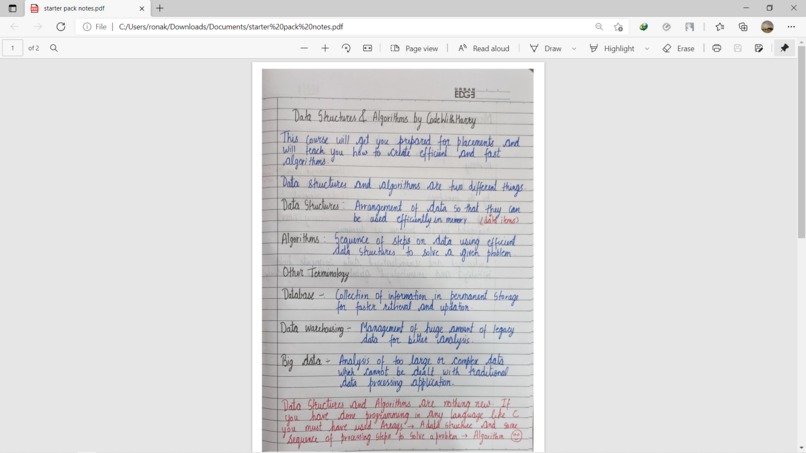 starter pack notes.pdf
File
C:/Users/ronak/Downloads/Documents/starter%20pack%20notes.pdf
1 of 2
Page view
Read aloud
Draw
Highlight
Erase
EDGE
Data Structures & Algorithms by CodeWithHarry
This course will get you prepared for placements and
will teach you how to create efficient and fast
algorithms.
Data structures and algorithms are two different things.
Data Structures: Arrangement of data so that they can
be used efficiently in memory (data items)
Algorithms: Sequence of steps on data using efficient
data structures to solve a given problem
Other Terminology
Database - Collection of information in permanent storage
for faster retrieval and updation
Data warehousing - Management of huge amount of legacy
data for better analysis.
Big data - Analysis of too large or complex data
which cannot be dealt with traditional
data processing application.
Data Structures and Algorithms are nothing new. If
you have done programming in any language like C
you must have used Arrays → A data structure and some
sequence of processing steps to solve a problem → Algorithm